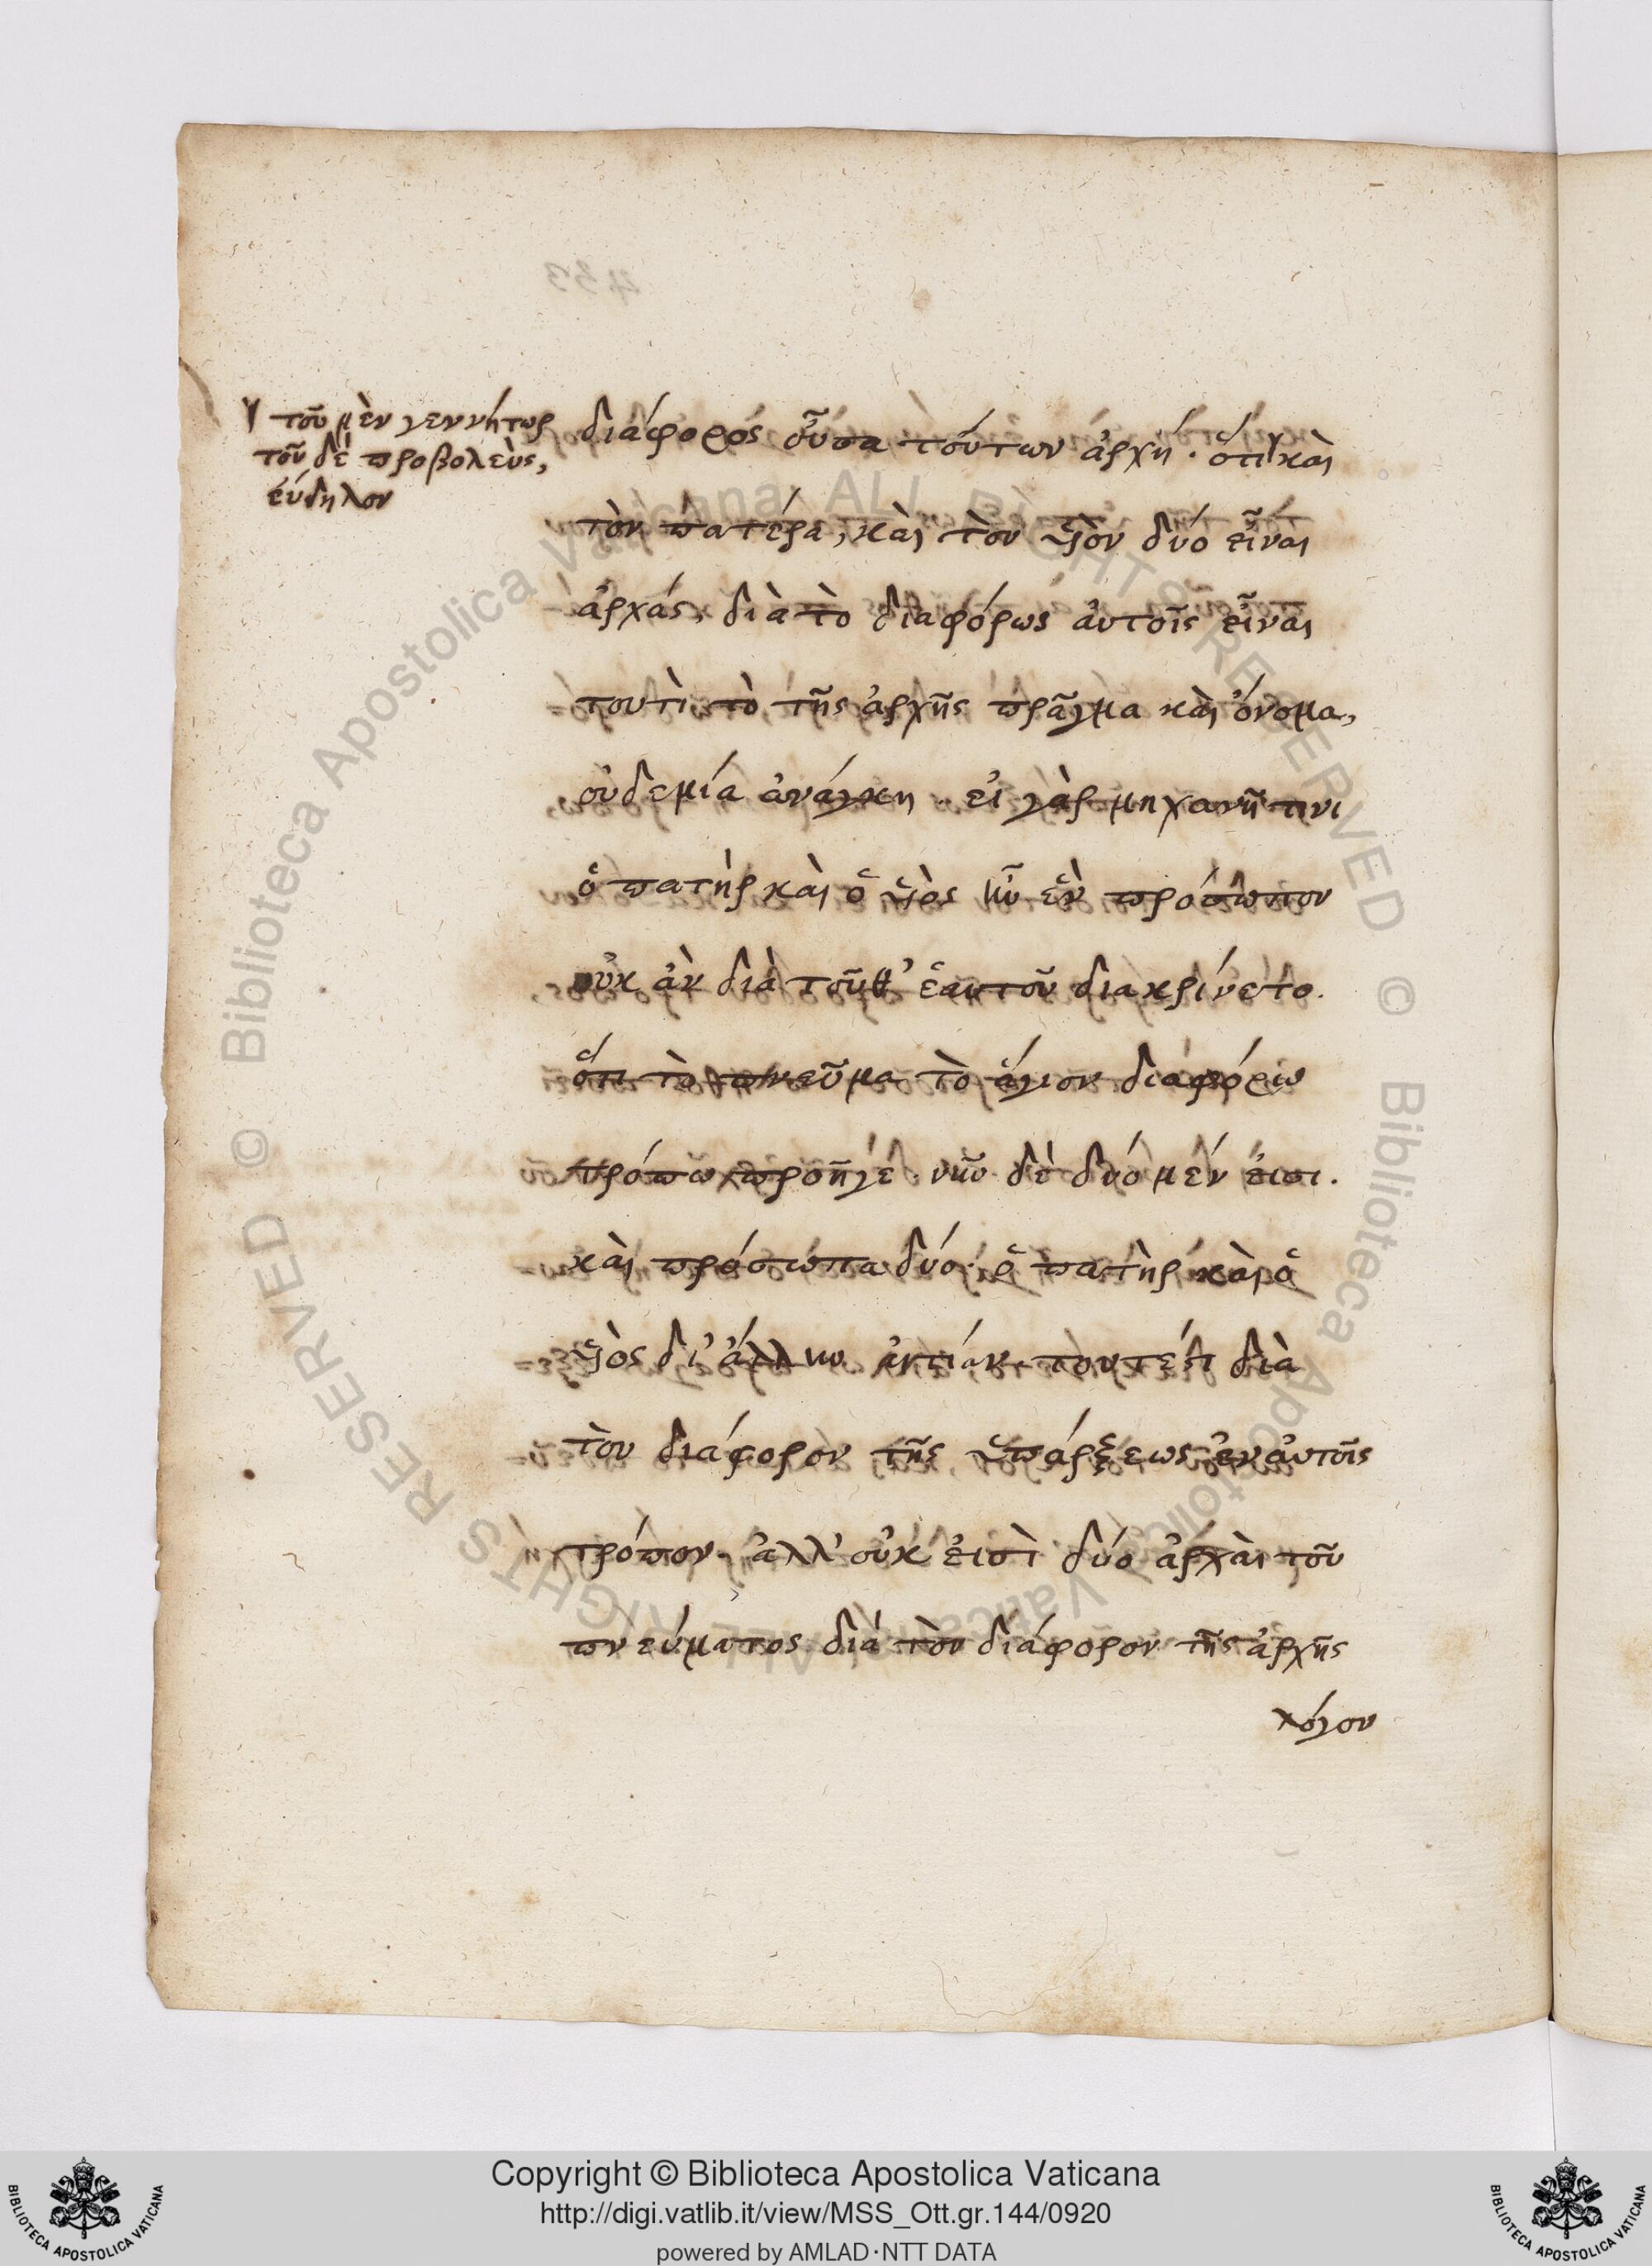 433
γ τοῦ μὲν γεννήτωρ
τοῦ δὲ προβολεὺς,
εὔδηλον
διάφορός οὖσα τούτων ἀρχή· ὅτι γ καὶ
τὸν πατέρα, καὶ τὸν υἱὸν δύο εἶναι
ἀρχάς, διὰ τὸ διαφόρως αὐτοῖς εἶναι
τουτὶ τὸ τῆς ἀρχῆς πρᾶγμα καὶ ὄνομα,
οὐδεμία ἀνάγκη· εἰ γὰρ μηχανῇ τινι
ὁ πατὴρ καὶ ὁ υἱὸς ἦν ἓν πρόσωπον
οὐκ ἂν διὰ τοῦθ' ἑαυτοῦ διακρίνετο.
ὅτι τὸ πνεῦμα τὸ ἅγιον διαφόρω
τρόπω προῆγε· νῦν δὲ δυό μέν εἰσι.
καὶ πρόσωπα δύο· ὁ πατὴρ καὶ ὁ
υἱὸς δι' ἄλλην αἰτίαν. τουτέστι διὰ
τὸν διάφορον τῆς ὑπάρξεως ἐν αὐτοῖς
τρόπον· ἀλλ' οὐκ εἰσὶ δύο ἀρχαὶ τοῦ
πνεύματος διὰ τὸν διάφορον τῆς ἀρχῆς
λόγον
© Biblioteca Apostolica Vaticana ALL RIGHTS RESERVED © Biblioteca Apostolica Vaticana ALL RIGHTS RESERVED
Copyright © Biblioteca Apostolica Vaticana
http://digi.vatlib.it/view/MSS_Ott.gr.144/0920
powered by AMLAD·NTT DATA
BIBLIOTECA APOSTOLICA VATICANA
BIBLIOTECA APOSTOLICA VATICANA